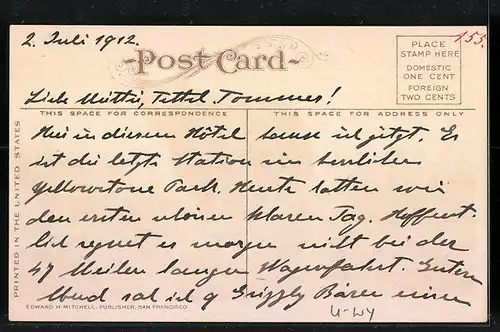 2. Juli 1912.
Post Card
155.
PLACE
STAMP HERE
DOMESTIC
ONE CENT
FOREIGN
TWO CENTS
Liebe Mutti, Tommes!
THIS SPACE FOR CORRESPONDENCE
THIS SPACE FOR ADDRESS ONLY
Hier in diesem Hôtel hause ich jetzt. Es
ist die letzte Station im herrlichen
Yellowstone Park. Heute hatten wir
den ersten schönen klaren Tag. Hoffent-
lich regnet es morgen nicht bei der
47 Meilen langen Wagenfahrt. Gestern
Abend sah ich 9 Grizzly Bären einen
PRINTED IN THE UNITED STATES
EDWARD H. MITCHELL, PUBLISHER, SAN FRANCISCO
U-WY